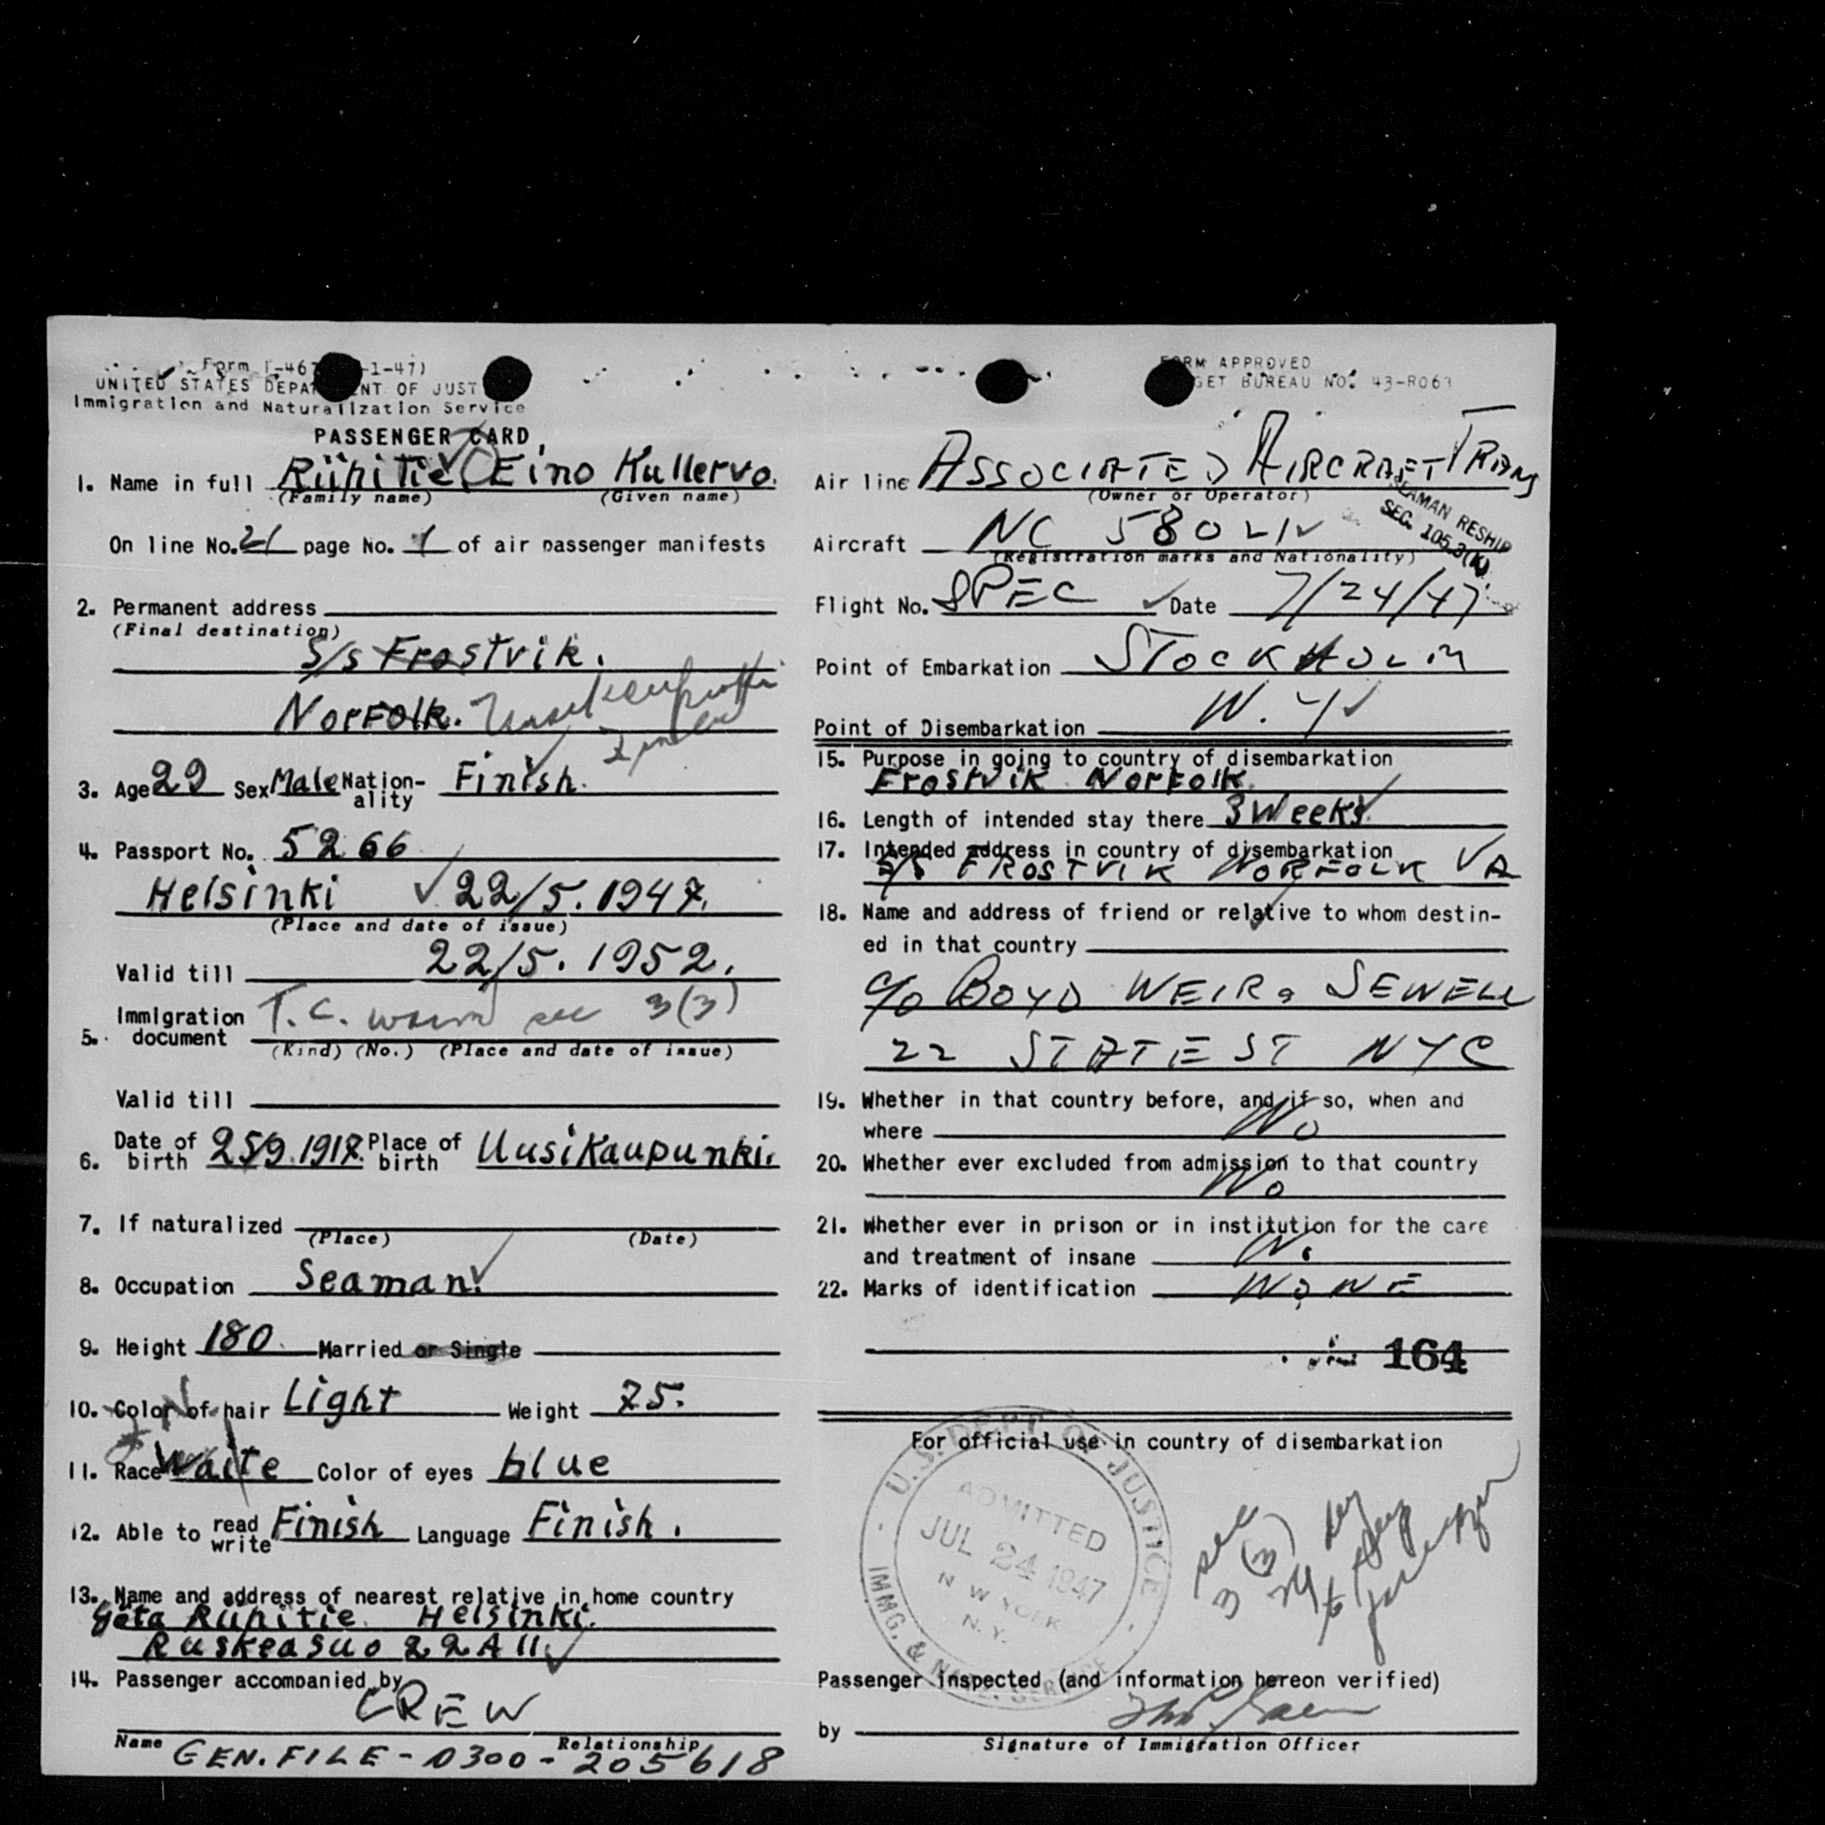 Form I-467 -1-47)
UNITED STATES DEPA NT OF JUST
Immigration and Naturalization Service
PASSENGER CARD
1. Name in full Riihitie Eino Kullervo.
(Family name) (Given name)
On line No. 21 page No. 1 of air passenger manifests
2. Permanent address
(Final destination)
S/s Frostvik.
Norfolk.
3. Age 29 Sex Male Nation-ality Finish.
4. Passport No. 5266
Helsinki 22/5. 1947.
(Place and date of issue)
Valid till 22/5. 1952.
5. Immigration document T.C. sec 3(3)
(Kind) (No.) (Place and date of issue)
Valid till
6. Date of birth 25/9. 1917. Place of birth Uusikaupunki.
7. If naturalized
(Place) (Date)
8. Occupation Seaman.
9. Height 180 Married or Single
10. Color of hair Light Weight 75.
11. Race Waite Color of eyes blue
12. Able to read write Finish Language Finish.
13. Name and address of nearest relative in home country
Göta Riihitie. Helsinki.
Ruskeasuo 22 A 11.
14. Passenger accompanied by
CREW
Name Relationship
GEN. FILE - 0300 - 205618
FORM APPROVED
GET BUREAU NO. 43-R063
Air line ASSOCIATED AIRCRAFT TRANS
(Owner or Operator)
SEAMAN RESHIP
SEC. 105.3(K)
Aircraft NC 58021
(Registration marks and Nationality)
Flight No. SPEC Date 7/24/47
Point of Embarkation STOCKHOLM
Point of Disembarkation N.Y
15. Purpose in going to country of disembarkation
Frostvik Norfolk.
16. Length of intended stay there 3 Weeks.
17. Intended address in country of disembarkation
S/S FROSTVIK NORFOLK VA
18. Name and address of friend or relative to whom destin-
ed in that country
c/o BOYD WEIR & SEWELL
22 STATE ST NYC
19. Whether in that country before, and if so, when and
where No
20. Whether ever excluded from admission to that country
No
21. Whether ever in prison or in institution for the care
and treatment of insane No
22. Marks of identification NONE
164
For official use in country of disembarkation
U.S. DEPT. OF JUSTICE
ADMITTED
JUL 24 1947
N W YORK
N.Y.
IMMG. & NATZ. SERVICE
sec
3 (3)
Passenger inspected (and information hereon verified)
by
Signature of Immigration Officer